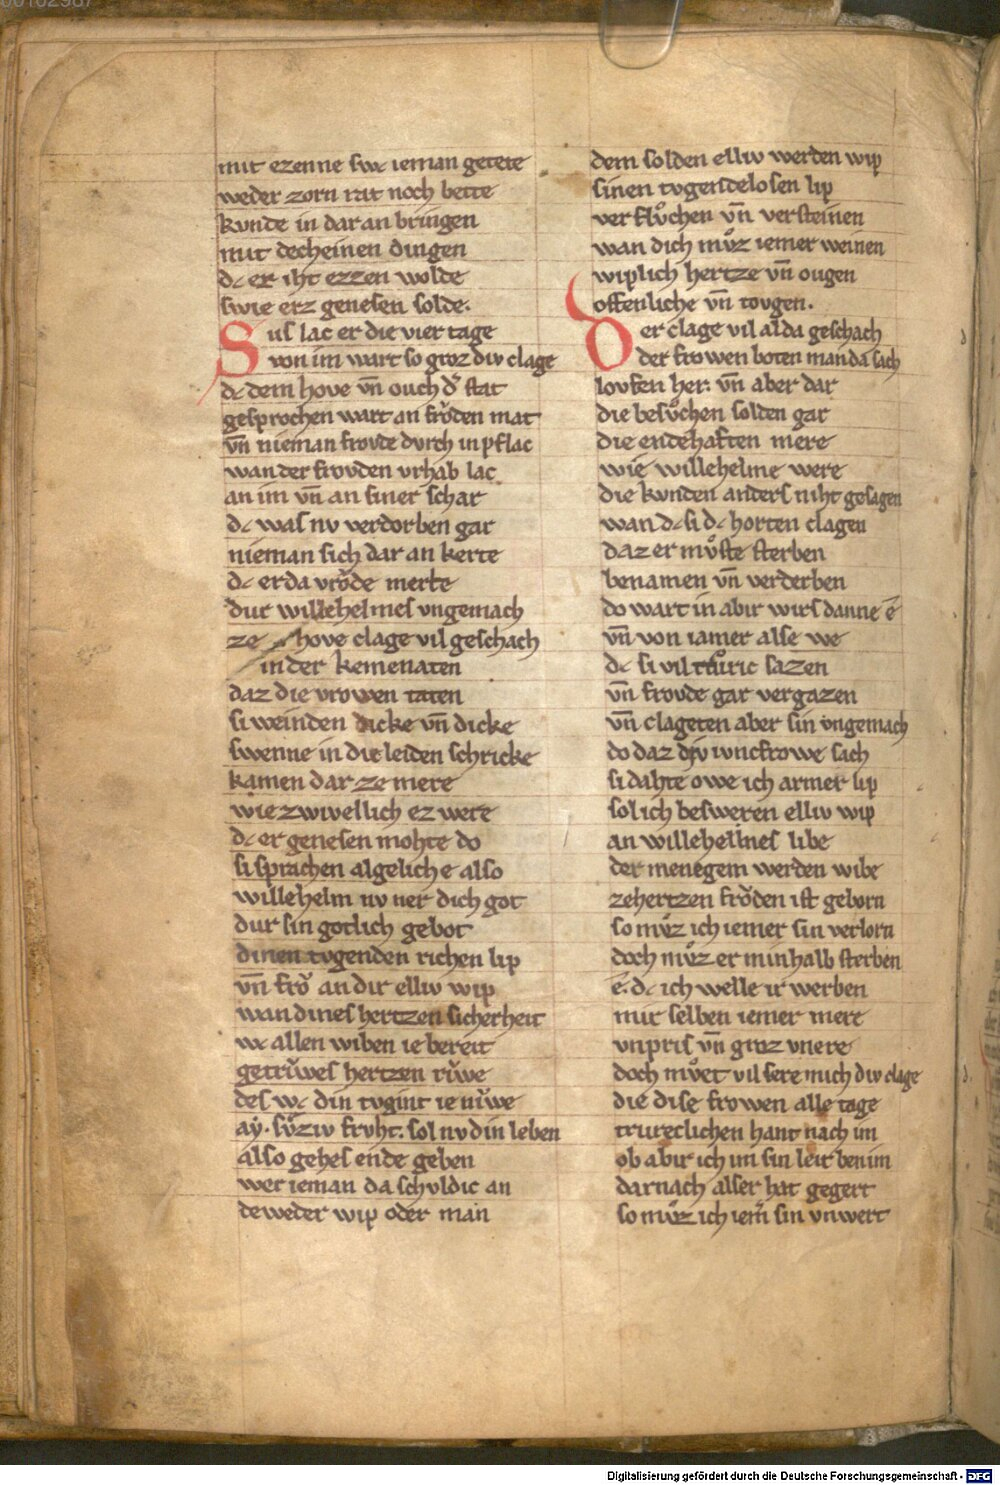 mit ezenne swc ieman getete
weder zorn rat noch bette
kvnde in dar an bringen
mit decheinen dingen
dc er iht ezzen wolde
swie erz genesen solde.
Sus lac er die vier tage
von im wart so groz div clage
dc dem hove vn̄ ouch d͛ stat
gesprochen wart an frǒden mat
vn̄ nieman frovde dvrch in pflac
wan der frovden vrhab lac
an im vn̄ an siner schar
dc was nv verdorben gar
nieman sich dar an kerte
dc er da vrǒde merte
dur willehelmes vngemach
ze hove clage vil geschach
in der kemenaten
daz die vrowen taten
si weinden dicke vn̄ dicke
swenne in die leiden schricke
kamen dar ze mere
wie zwivellich ez were
dc er genesen mohte do
si sprachen algeliche also
willehelm nv ner dich got
dur sin gotlich gebot
dinen tvgenden richen lip
vn̄ frǒ an dir elliv wip
wan dines hertzen sicherheit
wc allen wiben ie bereit
getrůwes hertzen růwe
des wc din tvgint ie nůwe
aẏ. sůziv frvht. sol nv din leben
also gehes ende geben
wer ieman da schvldic an
deweder wip oder man
dem solden elliv werden wip
sinen tvgendelosen lip
verflůchen vn̄ versteinen
wan dich můz iemer weinen
wiplich hertze vn̄ ougen
offenliche vn̄ tovgen.
Der clage vil alda geschach
der frowen boten man da sach
lovfen her. vn̄ aber dar
die besůchen solden gar
die endehaften mere
wie willehelme were
die kvnden anders niht gesagen
wan dc si dc horten clagen
daz er můste sterben
benamen vn̄ verderben
do wart in abir wirs danne ē
vn̄ von iamer alse we
dc si vil truric sazen
vn̄ frovde gar vergazen
vn̄ clageten aber sin vngemach
do daz div ivncfrowe sach
si dahte owe ich armer lip
sol ich besweren elliv wip
an willehelmes libe
der menegem werden wibe
ze hertzen frǒden ist geborn
so můz ich iemer sin verlorn
doch můz er minhalb sterben
ē. dc ich welle ir werben
mir selben iemer mere
vnpris vn̄ groz vnere
doch můet vil sere mich div clage
die dise frowen alle tage
trureclichen hant nach im
ob abir ich im sin leit benim
darnach alser hat gegert
so můz ich iem͛ sin vnwert
Digitalisierung gefördert durch die Deutsche Forschungsgemeinschaft - DFG